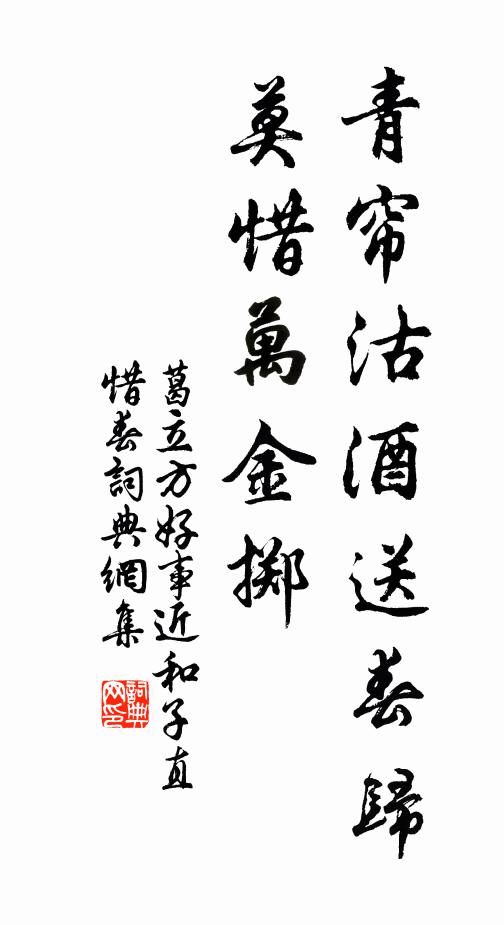 青帘沽酒送春歸
莫惜萬金擲
葛立方好事近和子直
惜春詞典網集
詞典
网印